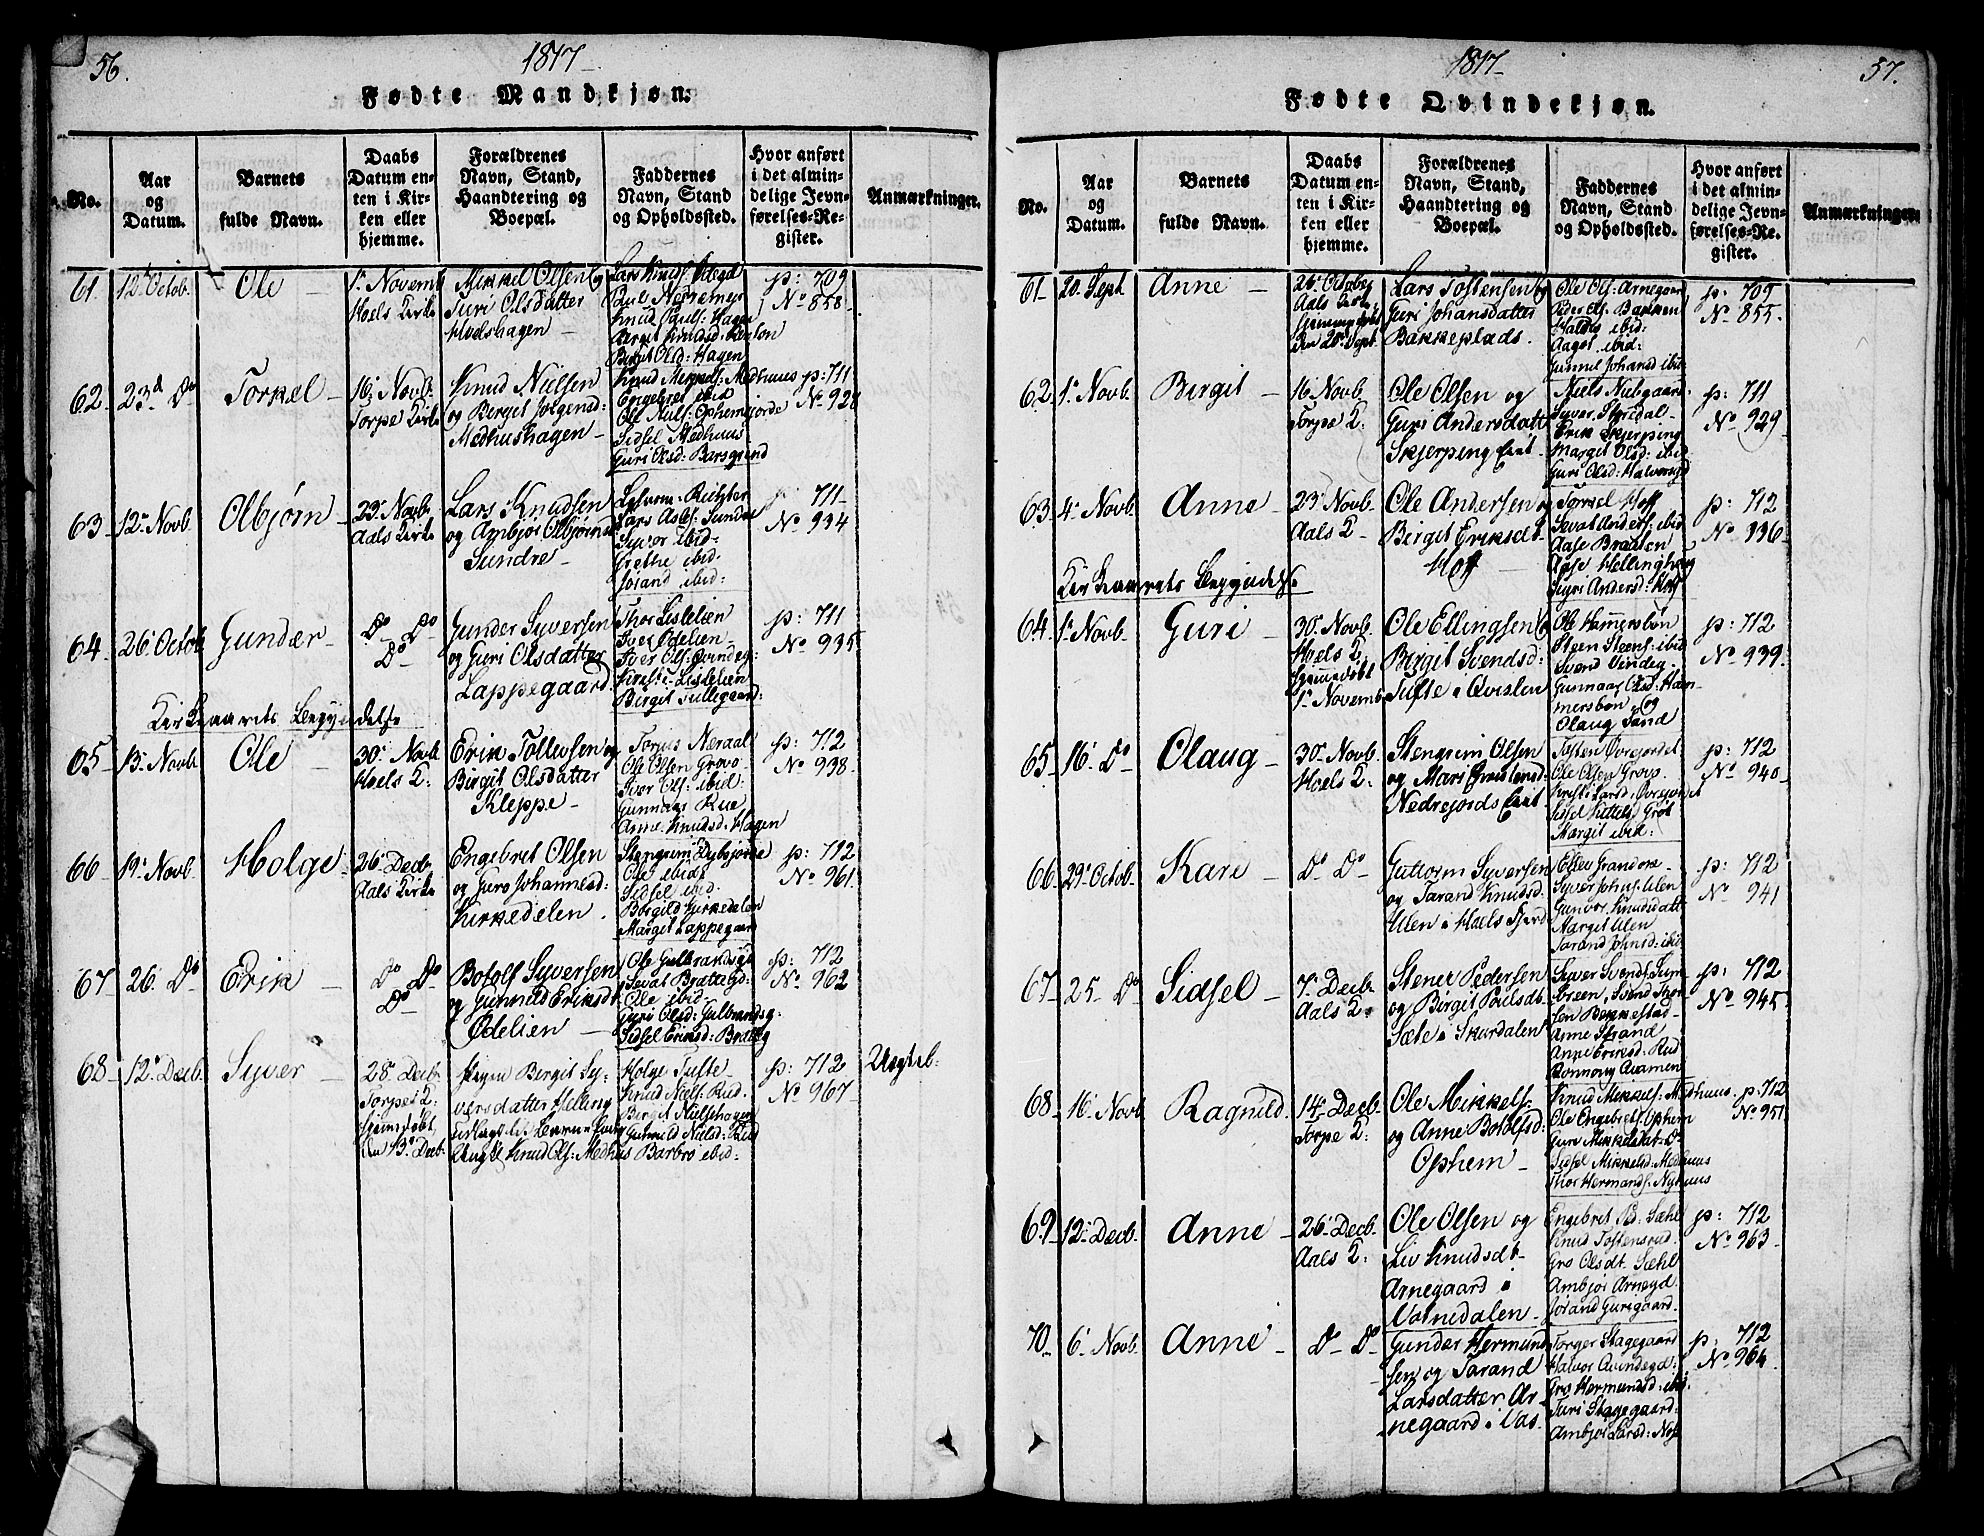 56.
1817
Fødte Mandkjøn:
No.
Aar og Datum.
Barnets fulde Navn.
Daabs Datum enten i Kirken eller hjemme.
Forældrenes Navn, Stand, Haandtering og Boepæl.
Faddernes Navn, Stand og Opholdssted.
Hvor anført i det almindelige Jevnførelses-Register.
Anmærkninger.
61
12t Octob.
Ole
1. Novemb
Hoels Kirke
Mikkel Olsen og
Turi Olsdatter
Hoelshagen
Lars Knuds:
Paul Nedreney
Knud Pauls: Hagen
Birgit Knudsd:
Birgit Olsd: Hagen
p: 709
No 858.
62
23d Do
Torkel
16 Novb
Torpe Kirke
Knud Nielsen
og Birgit
Medhushagen
Knud Mikkels: Medhuus
Engebret ibid
Ole Niels: Ophemsjorde
Sidsel Medhuus
Guri Olsd:
p: 711
No 928
63
12. Novb
Olbjørn
23 Novb
Aals Kirke
Lars Knudsen
og Ambjør Olbjørnsd
Sundre
Richter
Lars Asles: Sundre
Syver ibid:
Grethe ibid:
Jørand ibid:
p: 711
No 934
64
26 Octob
Gunder
Do Do
Do
Gunder Syversen
og Guri Olsdatter
Lappegaard
Thor Lislelien
Iver Ødelien
Iver Ols: Qvindeg:
Kirsti Lislelien
Birgit Tullegaard:
p: 711
No 935
Kirkeaarets Begyndelse
65
13. Novb
Ole
30 Novb
Hoels K:
Erik Tollevsen og
Birgit Olsdatter
Kleppe
Torjus Næraal
Ole Olsen Grovo
Iver Ols: ibid:
Gunnaug Rue
Anne Knudsd: Hagen
p: 712
No 938.
66
19. Novb
Holge
26 Decb
Aals Kirke
Engebret Olsen
og Guro Johannesd:
Kirkedelen.
Stengrim
Ole ibid:
Sidsel ibid
Borgild Kirkedalen
Margit Lappegaar
p: 712
No 961.
67
26 Do
Erik
Do Do
Do
Botolf Syversen
og Gunnild Eriksdt
Ødelien
Ole Gulbrandsg:
Sevat Brattegd:
Ole ibid
Guri Olsd: Gulbrandsg:
Sidsel Eriksd: Bratteg
p: 712
No 962
68
12. Decb.
Syver
28. Decb
Torpe K:
hjemdøbt
den 13. Decb.
Pigen Birgit Syversdatter Helling
udlagt til Barnefader
Knud Ols: Medhus
Holge Tufte
Knud Niels: Rud.
Birgit Nielshagen
Gunnild Nielsd: Rud
Barbro ibid:
p: 712
No 967
Uægteb:
57.
1817
Fødte Qvindekjøn.
No.
Aar og Datum.
Barnets fulde Navn.
Daabs Datum enten i Kirken eller hjemme.
Forældrenes Navn, Stand, Haandtering og Boepæl.
Faddernes Navn, Stand og Opholdssted.
Hvor anført i det almindelige Jevnførelses-Register.
Anmærkninger.
61
20. Sept
Anne
26 Octobr
Aals Kirke
hjemmedøbt
den 20 Sept.
Lars Tostensen og
Guri Johansdatter
Bakkeplads.
Ole Ols: Arnegaar
Peder Els: Bakken
Haldis ibid:
Aagot ibid:
Gunnil Johansd ibid
p: 709
No 855.
62
1. Novb.
Birgit
16 Novb
Torpe K:
Ole Olsen og
Guri Andersdatt
Skjerping Eiet
Niels Nubgaard
Syver Storedal
Erik Skjerping
Margit Olsd: ibid
Guri Olsd: Halversgd
p: 711
No 929.
63
4. Novb.
Anne
23 Novb
Aals K
Ole Andersen og
Birgit Eriksdt
Hoff
Torkel Hoff
Sevat Anders: ibid
Aase Braaten
Aase Hellinghaug
Sigri Andersd: Hof
p: 712
No 936.
Kirkeaarets Begyndelse
64
1. Novb.
Guri
30 Novb.
Hoels K
hjemmedøbt
1. Novemb
Ole Ellingsen og
Birgit Svendsd:
Tufte i Qvislen
Ole Hammersbøn
Steen Steens: ibid
Svend Vindeg:
Gunnaug Olsd: Hammersbøn og
Olaug Sand
p: 712
No 939.
65
16. Do
Olaug
30. Novb.
Hoels K:
Stengrim Olsen
og Mari
Nedrejords Eiet
Tosten Øvrejordet
Ole Olsen Group
Kirsti Larsd:
Sidsel
Margit ibid:
p: 712
No 940.
66
29. Octob.
Kari
Do Do
Guttorm Syversen
og Tarand Knudsd
Ulen i Hoels Fjerd
Ellev Grandore
Syver Johns: Ulen
Gunvor Knudsdatt
Margit Ulen
Tarand Johnsd: ibid
p: 712
No 941
67
25 Do
Sidsel
7. Decb
Aals K
Stener Pedersen
og Birgit Poulsdt
Sæte i Skurdalen
Syver Svends:
Svend
Anne Strand
Anne Eriksd: Rud
Rønnoug Aamen
p: 712
No 945
68
16 Novb
Ragnild
14. Decb
Torpe K:
Ole Mikkels:
og Anne Botolfsd:
Ophem
Knud Mikkels: Medhuus.
Ole Engebrets: Ophem
Guri Mikkelsdat: Do
Sidsel Mikkelsd: Medhuus
Thor Hermands: Nyhuus
p: 712
No 951
69
12. Decb.
Anne
26 Decb.
Aals K:
Ole Olsen og
Liv Knudsdt
Arnegaard i
Votnedalen
Engebret Sæhl
Knud Tostensrud
Gro Olsdt. Sæhl
Ambjør Arnegd.
Jørand Guregaard.
p: 712
No 963
70
6. Novb.
Anne
Do Do
Gunder Hermundsen og Tarand
Larsdatter Arnegaard i Vas.
Torger Stagegaard
Halvor Qvindegd:
Gro Hermundsd: ibid.
Turi Stagegaard:
Ambjør Larsd: Nos
p: 712
No 964